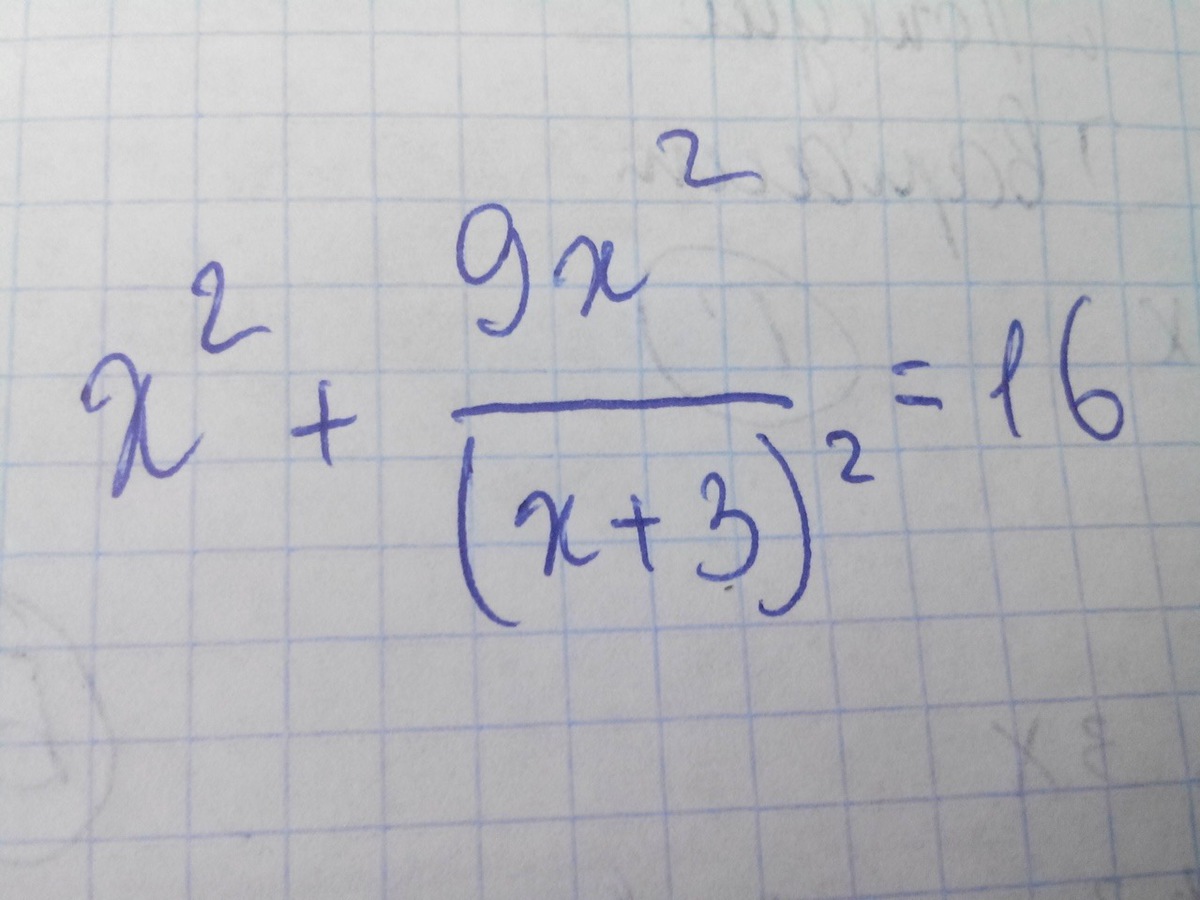 x² + 9x²/(x+3)² = 16
3x